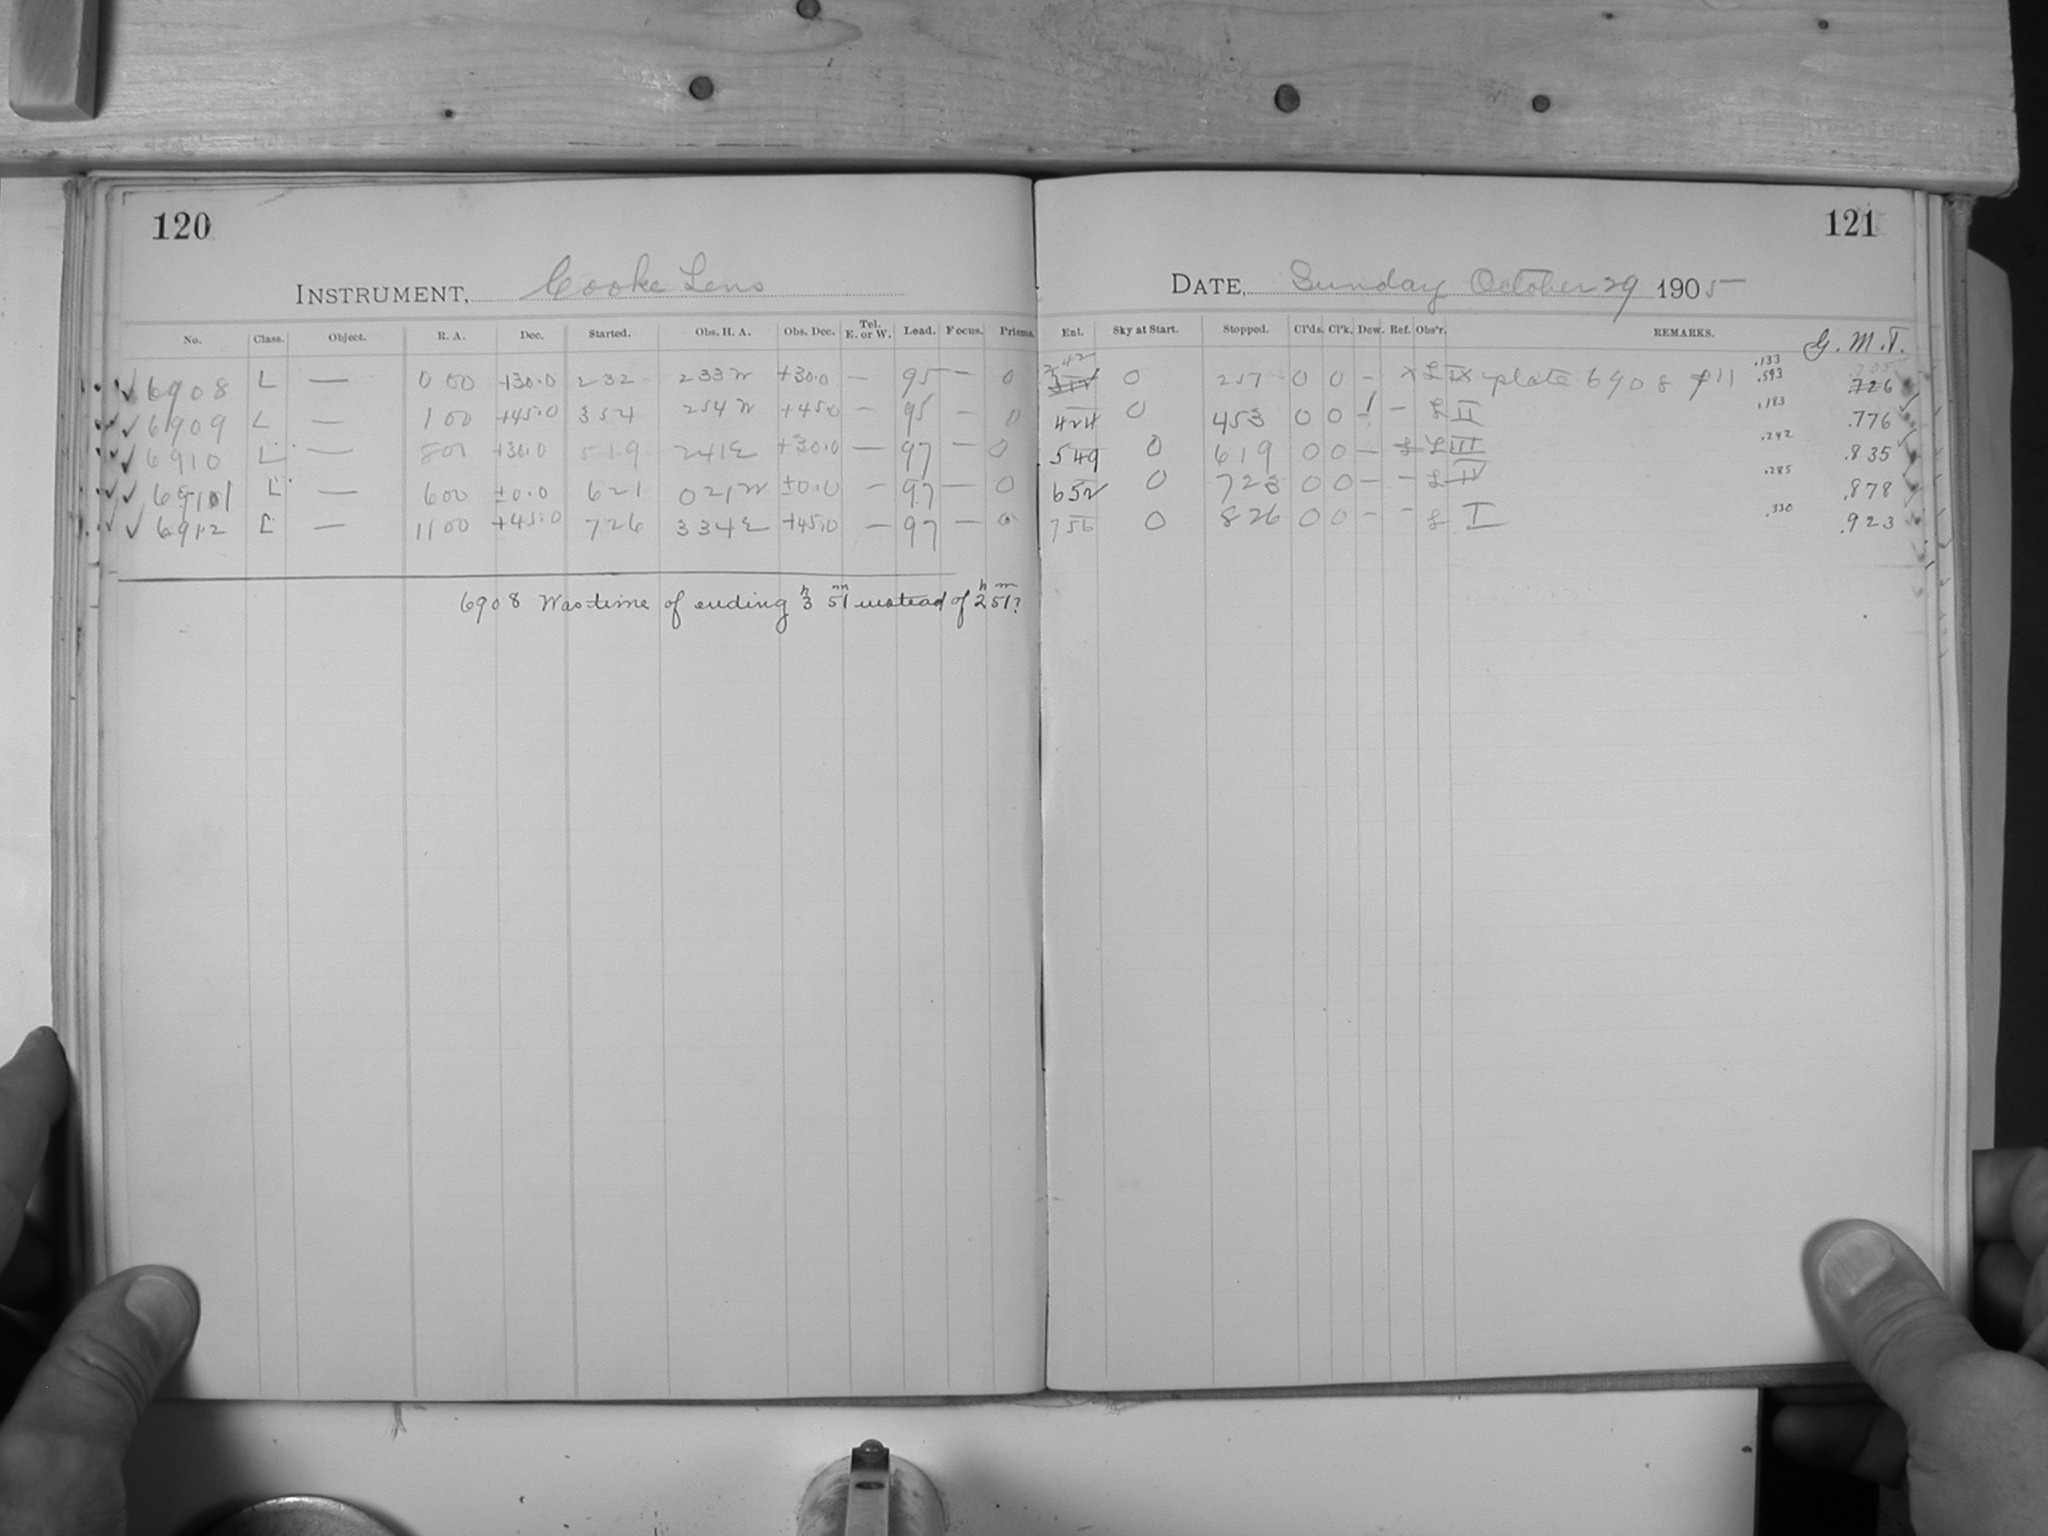 120
INSTRUMENT, Cooke Lens
No. Class. Object. R. A. Dec. Started. Obs. H. A. Obs. Dec. Tel. E. or W. Lead. Focus. Prisms.
✓ 6908 L — 0 00 +30.0 2 32 2 33 W +30.0 — 95 — 0
✓ 6909 L — 1 00 +45.0 3 54 2 54 W +45.0 — 95 — 0
✓ 6910 L — 8 00 +30.0 5 19 2 41 E +30.0 — 97 — 0
✓ 6911 L — 6 00 ±0.0 6 21 0 21 W ±0.0 — 97 — 0
✓ 6912 L — 11 00 +45.0 7 26 3 34 E +45.0 — 97 — 0
6908 Was time of ending 3h 51m instead of 2h 51m?
121
DATE, Sunday October 29 1905
Ent. Sky at Start. Stopped. Cl'ds. Cl'k. Dew. Ref. Obs'r. REMARKS. G. M. T.
2 42 0 2 57 0 0 — × L IX plate 6908 .133 .593 .705 .726
4 24 0 4 53 0 0 — L II .183 .776
5 49 0 6 19 0 0 — L III .242 .835
6 52 0 7 23 0 0 — — L IV .285 .878
7 56 0 8 26 0 0 — — L I .330 .923